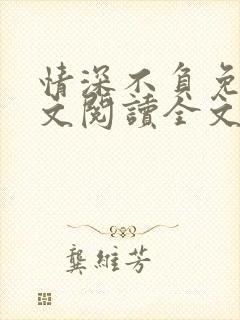 情深不負免
文閱讀全文
龔維芳